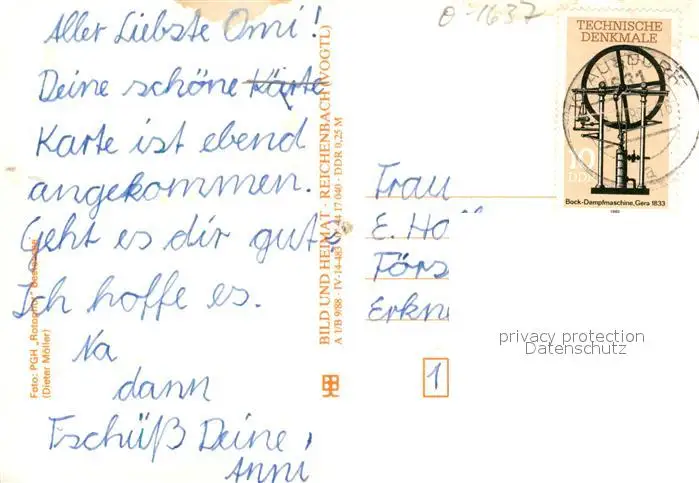 Aller Liebste Omi!
Deine schöne Karte
Karte ist ebend
angekommen.
Geht es dir gut?
Ich hoffe es.
Na
dann
Tschüß Deine,
Anni
Foto: PGH "Rotophot"
(Dieter Möller)
BILD UND HEIMAT · REICHENBACH (VOGTL)
A 1/B 9/88 · IV-14-483 · 17 040 · DDR 0,25 M
θ-1637
TECHNISCHE
DENKMALE
10
DDR
Bock-Dampfmaschine, Gera 1833
Frau
E. Ho
Förs
Erkne
1
privacy protection
Datenschutz